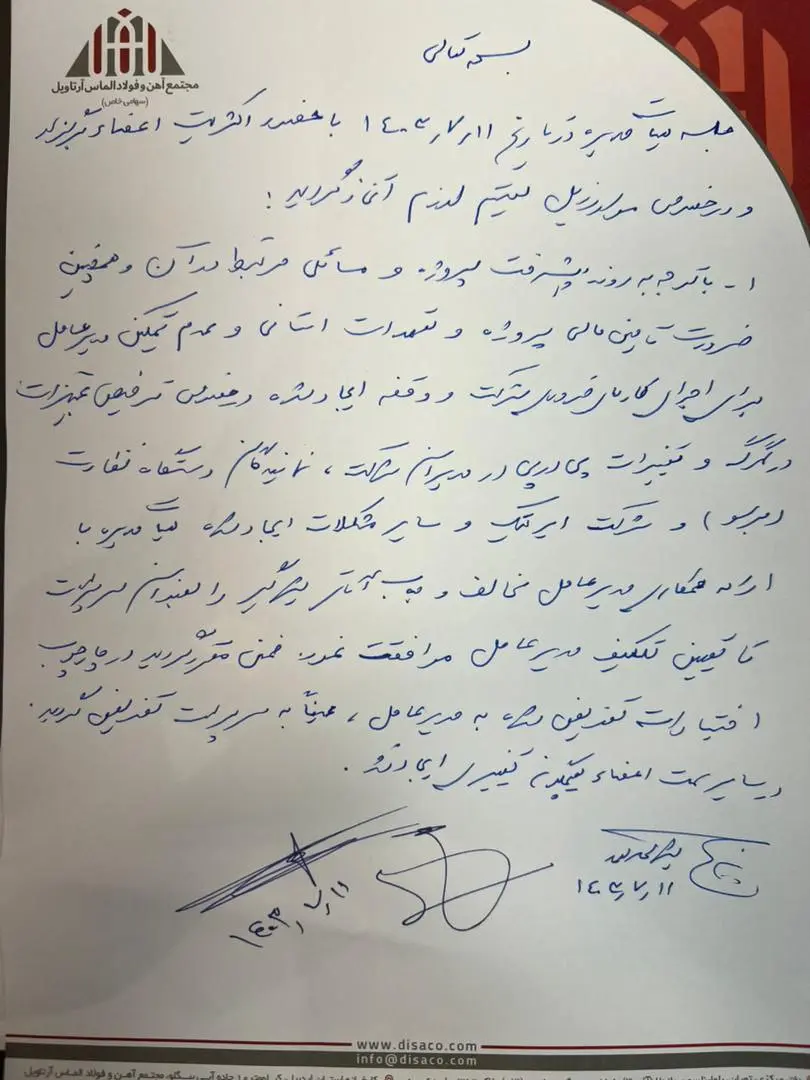 مجتمع آهن و فولاد الماس آرتاویل
(سهامی خاص)
بسمه تعالی
جلسه هیأت مدیره در تاریخ ۱۴۰۳/۷/۱۱ با حضور اکثریت اعضاء برگزار
و در خصوص موارد زیل تصمیم لازم اتخاذ گردید :
۱- با توجه به روند پیشرفت پروژه و مسائل مرتبط در آن و همچنین
ضرورت تامین مالی پروژه و تعهدات استانی و عدم تمکین مدیرعامل
برای اجرای کارهای ضروری شرکت و وقفه ایجاد شده در خصوص ترخیص تجهیزات
در گمرک و تغییرات پی در پی در مدیران شرکت ، نمایندگان دستگاه نظارت
و شرکت ایریتک و سایر مشکلات ایجاد شده هیأت مدیره با
ادامه همکاری مدیرعامل مخالف و آقای را بعنوان سرپرست
تا تعیین تکلیف مدیرعامل موافقت نمود. ضمنی مقرر گردید در چارچوب
اختیارات تفویض شده به مدیرعامل ، عیناً به سرپرست تفویض گردید.
در سایر سمت اعضاء هیچگونه تغییری ایجاد نشد .
۱۴۰۳/۷/۱۱
۱۴۰۳/۷/۱۱
www.disaco.com
info@disaco.com